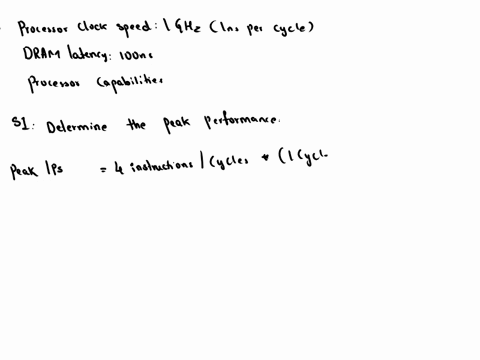 Processor clock speed: 1 GHz (1ns per cycle)
DRAM latency: 100ns
Processor capabilities
S1: Determine the peak performance.
Peak IPS = 4 instructions / cycles * (1 Cycl